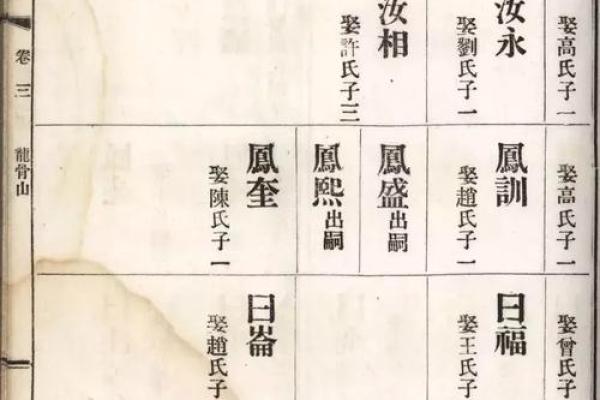 娶高氏子一
汝永
娶劉氏子一
汝相
娶許氏子三
娶高氏子一
鳳訓
娶趙氏子一
鳳盛出嗣
鳳熙出嗣
鳳奎
娶陳氏子一
娶曾氏子
日福
娶王氏子
日崙
娶趙氏子
卷三
龍骨山